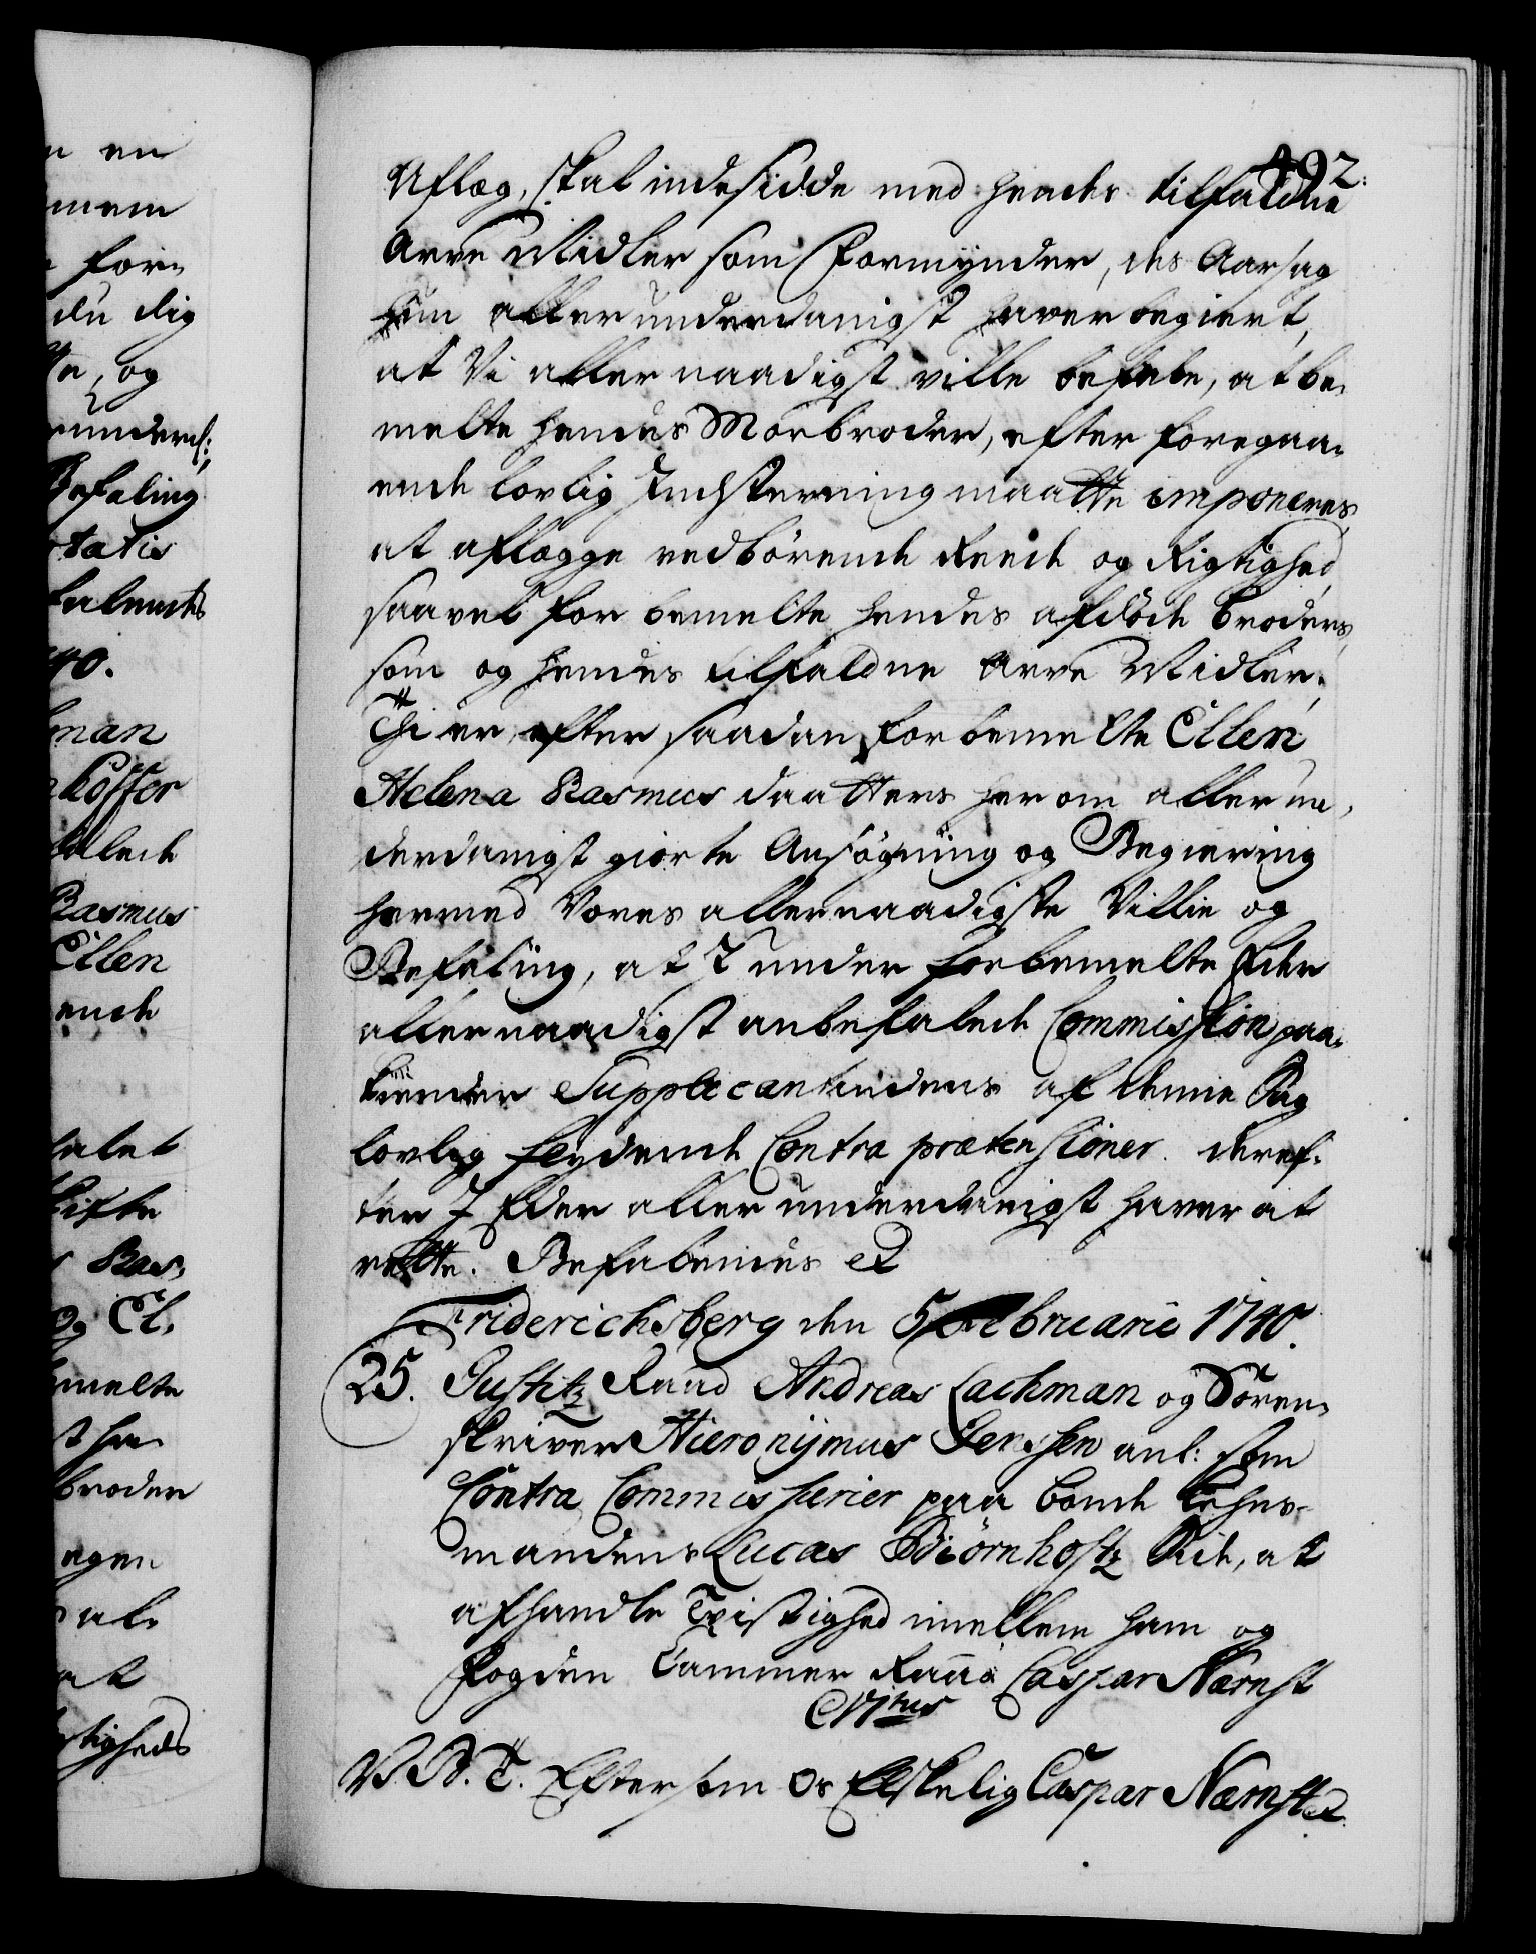 492.
Aflæg, skal indesidde med hendes tilfaldne
Arve Midler som Formynder, des Aarsag
hun allerunderdanigst haver begiert,
at Vi allernaadigst ville befale, at be-
melte hendes Morbroder, efter foregaa-
ende lovlig Indstevning maatte imponeres
at aflægge vedbørende Reede og Rigtighed,
saavel for bemelte hendes afdøde Broders,
som og hendes tilfaldne Arve Midler.
Thi er, efter saadan forbemelte Ellen
Helena Rasmus daatters herom allerun-
derdanigst giorte Ansøgning og Begiering
hermed Vores allernaadigste Villie og
Befaling, at I under forbemelte Eder
allernaadigst anbefalede Commission paa-
kiender Supplicantindens af denne Sag
lovlig flydende Contra prætensioner. deref-
ter I Eder allerunderdanigst haver at
rette. Befalendes etc
Friderichsberg den 5 Februarii 1740.
25. Justitz Raad Andreas Lachman og Soren-
skriver Hieronymus Jenssen anl: som
Contra Commissarier paa bonde Lehns-
mandens Lucas Biörnholtz Side, at
afhandle Tvistighed imellem ham og
Fogden Cammer Raad Caspar Nærnst
Mitus
V. A. T. Eftersom Os Elskelig Caspar Nærnsted